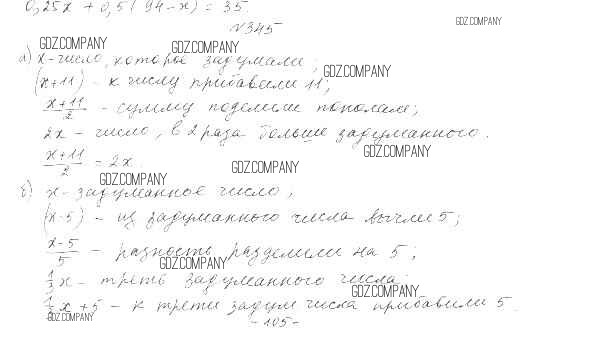 0,25x + 0,5(94-x) = 35.
GDZ.COMPANY
№345
GDZ.COMPANY
GDZ.COMPANY
а) x - число, которое задумали;
GDZ.COMPANY
(x+11) - к числу прибавили 11;
x+11/2 - сумму поделили пополам;
2x - число, в 2 раза больше задуманного.
GDZ.COMPANY
x+11/2 = 2x.
GDZ.COMPANY
GDZ.COMPANY
б) x - задуманное число;
(x-5) - из задуманного числа вычли 5;
x-5/5 - разность разделили на 5;
GDZ.COMPANY
1/3x - треть задуманного числа
GDZ.COMPANY
1/3x + 5 - к трети задум числа прибавили 5.
GDZ.COMPANY
- 105 -